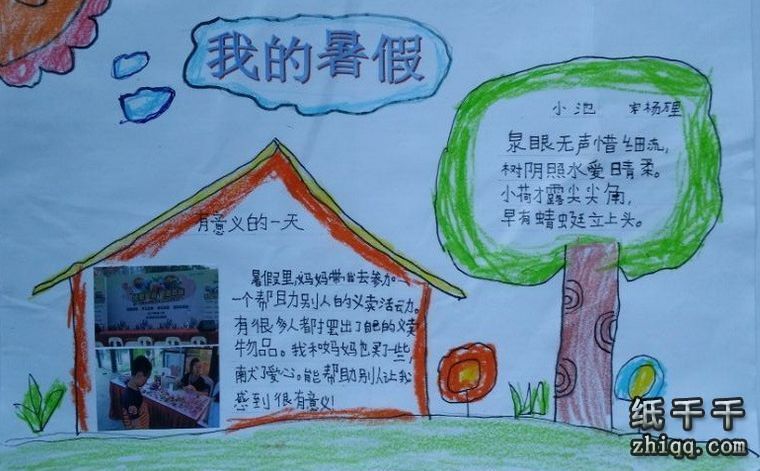 我的暑假
小池 宋杨
泉眼无声惜细流,
树阴照水爱晴柔。
小荷才露尖尖角,
早有蜻蜓立上头。
有意义的一天
暑假里,妈妈带我去参加
一个帮助别人的义卖活动。
有很多人都摆出了自己的义卖
物品。我和妈妈也买了一些,
献了爱心。能帮助别人让我
感到很有意义!
纸千千
zhiqq.com